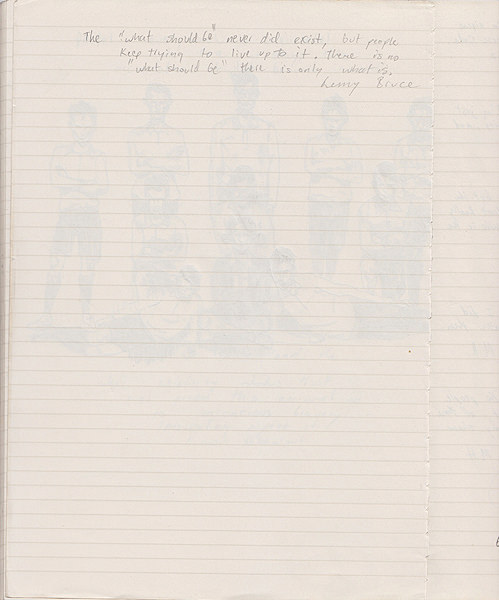 The "what should be" never did exist, but people
keep trying to live up to it. There is no
"what should be" there is only what is.
Lenny Bruce.